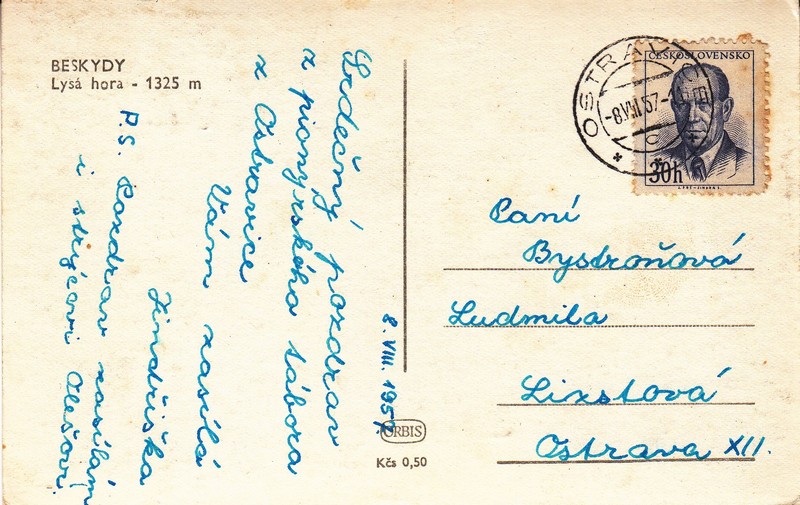 BESKYDY
Lysá hora - 1325 m
Srdečný pozdrav
z pionýrského tábora
z Ostravice
Vám zasílá
Jindřiška
P.S. Pozdrav zasílám
i strýcovi Alešovi.
8. VIII. 1957.
ORBIS
Kčs 0,50
ČESKOSLOVENSKO
30h
OSTRAVA
-8.VIII.57-
Paní
Bystroňová
Ludmila
Lixstová
Ostrava XII.